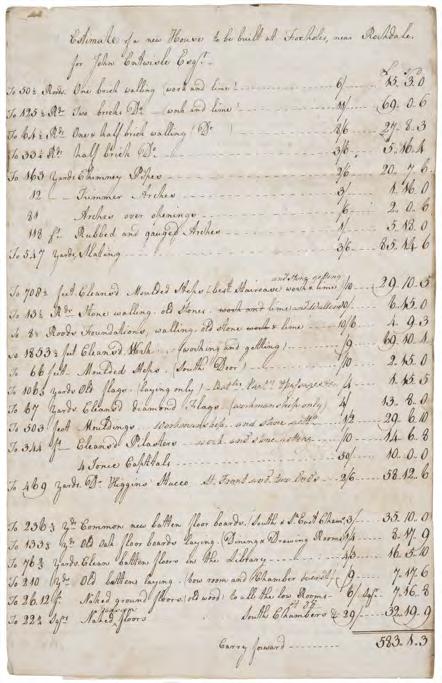 Estimate of a new House to be built at Foxholes, near Rochdale,
for John Entwisle Esqr.
To 50½ Rods One brick walling (work and lime) 6/ 15.3.0
To 125½ Rds Two bricks Do (work and lime) 11/ 69.0.6
To 64½ Rds One & half brick walling (Do) 8/6 27.8.3
To 33½ Rds half brick Do 3/6 5.16.4
To 163 Yards Chimney Pipes 2/6 20.7.6
12 Trimmer Arches 3/ 1.16.0
81 Arches over openings /6 2.0.6
118 ft Rubbed and gauged Arches 1/ 5.18.0
To 547 Yards Slating 3/6 85.14.6
and stone getting
To 708½ feet Cleansd Moulded Steps (best Staircase work & lime) /10 29.10.5
To 13½ Rds Stone walling, old Stones, work and lime 10/ 6.15.0
To 8½ Roods Foundations, walling, old stone work & lime 10/6 4.9.3
To 1853½ feet Cleansd Work (working and getting) /9 69.10.1
To 66 feet Moulded Steps (South Door) /10 2.15.0
To 106½ Yards Old flags (laying only) /4 1.15.5
To 67 Yards Cleansd diamond Flags (workmanship only) 4/ 13.8.0
To 503 feet Mouldings Workmanship and stone 1/2 29.6.10
To 344 ft Cleansd Pilasters work and stone getting /10 14.6.8
4 Ionic Capitals 50/ 10.0.0
To 469 Yards Dr Higgins Stucco St. Front and two Ends 2/6 58.12.6
To 236½ Yds Common new batten floor boards (South & St. East Chamr) 3/ 35.10.0
To 133½ Yds Old oak floor boards laying (Dining & Drawing Rooms) 1/4 8.17.9
To 76½ Yards Clean batten floors in the Library 4/3 16.5.10
To 210 Yds Old battens laying (bow room and Chamber over Do) /9 7.17.6
To 26.12 ft Naked ground floors (old wood) to all the low Rooms 6/ Sqr. 7.16.8
To 22¾ Sqrs Naked floors South Chambers 29/ 32.19.9
Carry forward 583.1.3